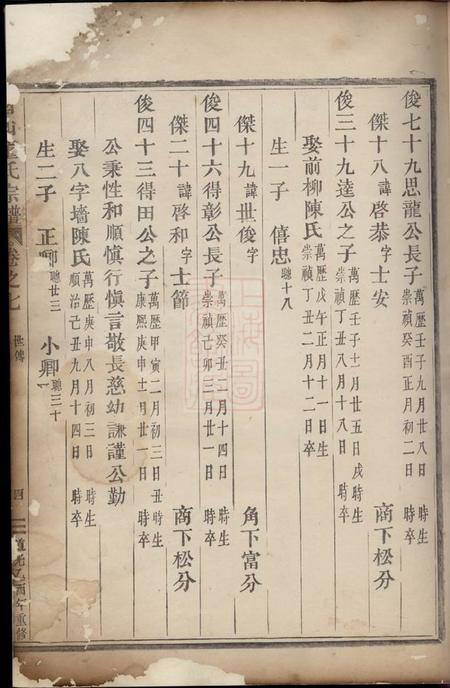 俊七十九思龍公長子 萬歷壬子九月廿八日 時生 崇禎癸酉正月初二日 時卒
傑十八諱啓恭字士安 商下松分
俊三十九達公之子 萬歷壬子十二月廿五日戌時生 崇禎丁丑八月十八日 時卒
娶前柳陳氏 萬歷戊午正月十一日生 崇禎丁丑二月十二日卒
生一子 僖忠聰十八
傑十九諱世俊字 角下富分
俊四十六得彰公長子 萬歷癸丑二月十四日 時生 崇禎己卯三月廿一日 時卒
傑二十諱啓和字士節 商下松分
俊四十三得田公之子 萬歷甲寅二月初三日丑時生 康熙庚申十二月廿一日 時卒
公秉性和順慎行慎言敬長慈幼謙謹公勤
娶八字墻陳氏 萬歷庚申八月初三日 時生 順治己丑九月十四日 時卒
生二子 正卿聰廿三 小卿聰三十
氏宗譜 卷之七 世傳 四 酉年重修